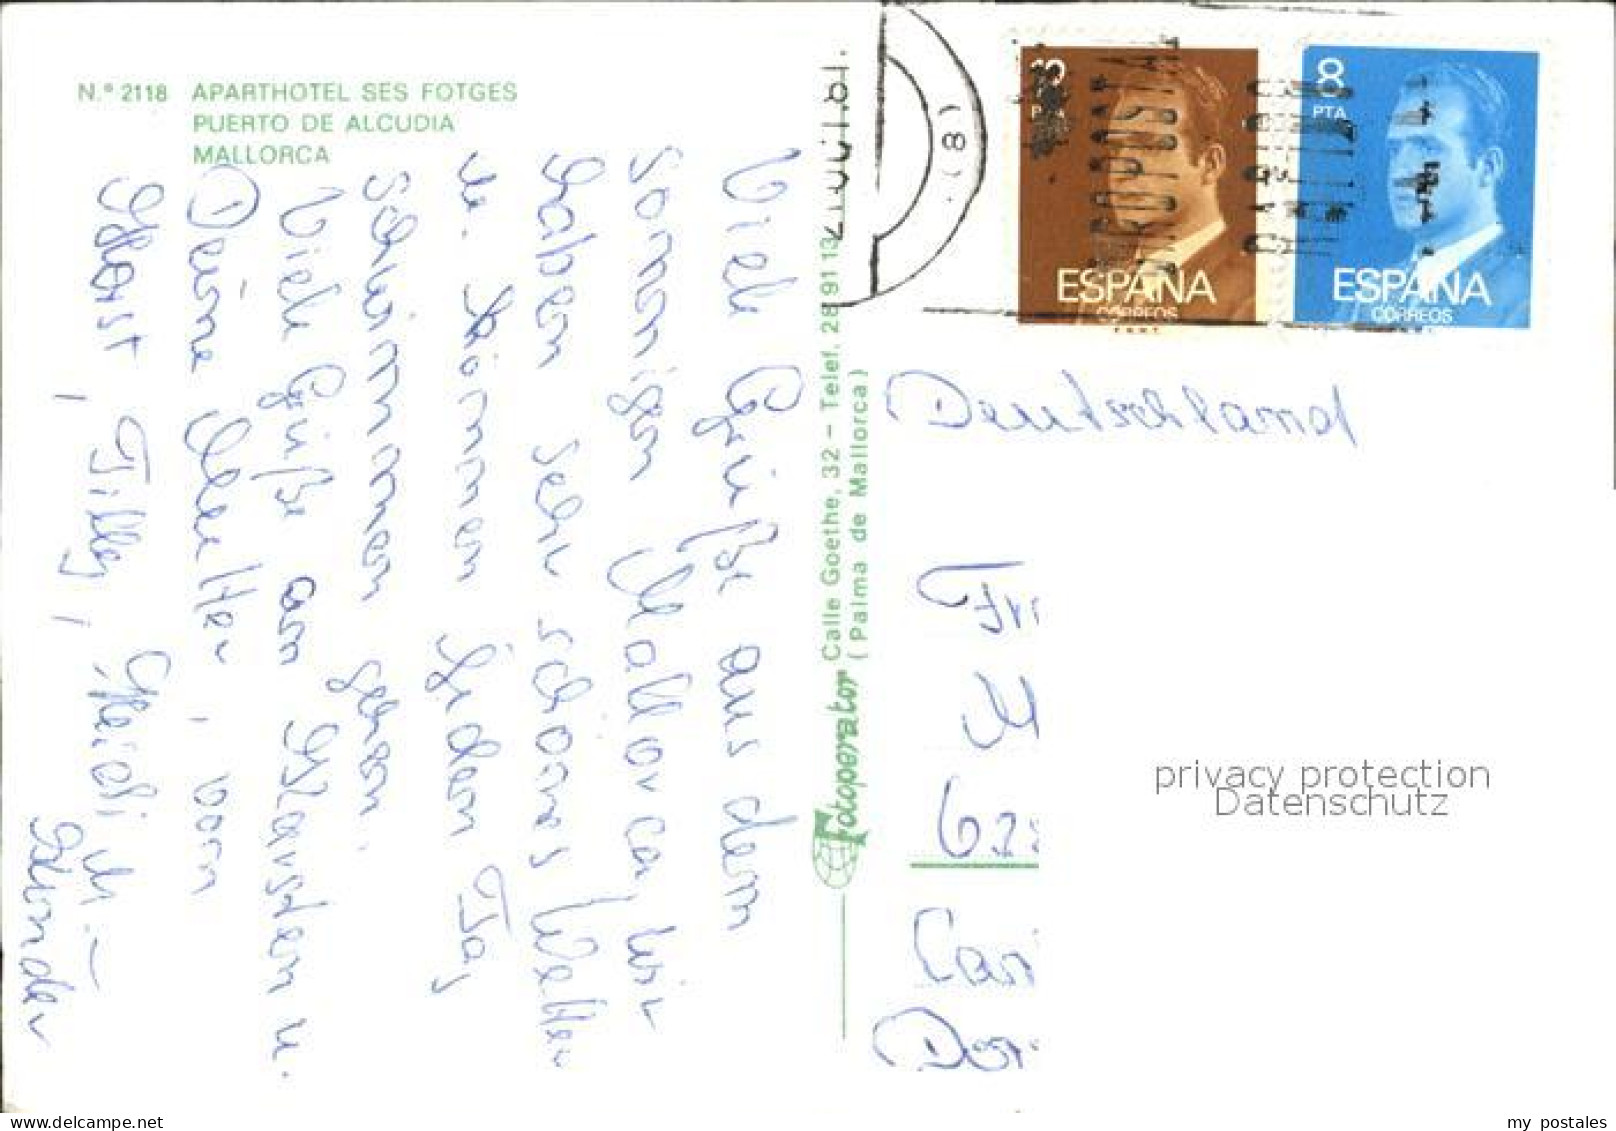 N.º 2118 APARTHOTEL SES FOTGES
PUERTO DE ALCUDIA
MALLORCA
Viele Grüße aus dem
sonnigen Mallorca, wir
haben sehr schönes Wetter
u. können jeden Tag
schwimmen gehen.
Viele Grüße an Karsten u.
Deine Mutter, von
Horst, Tilly, Heidi u.
Günter
Fotoperator Calle Goethe, 32 - Telef. 28 91 13
(Palma de Mallorca)
(8)
AEROPOSTAL
6
PTA
ESPAÑA
CORREOS
F.N.M.T.
8
PTA
ESPAÑA
CORREOS
Deutschland
Fr
M
62
Car
Dor
privacy protection
Datenschutz
delcampe.net
my_postales